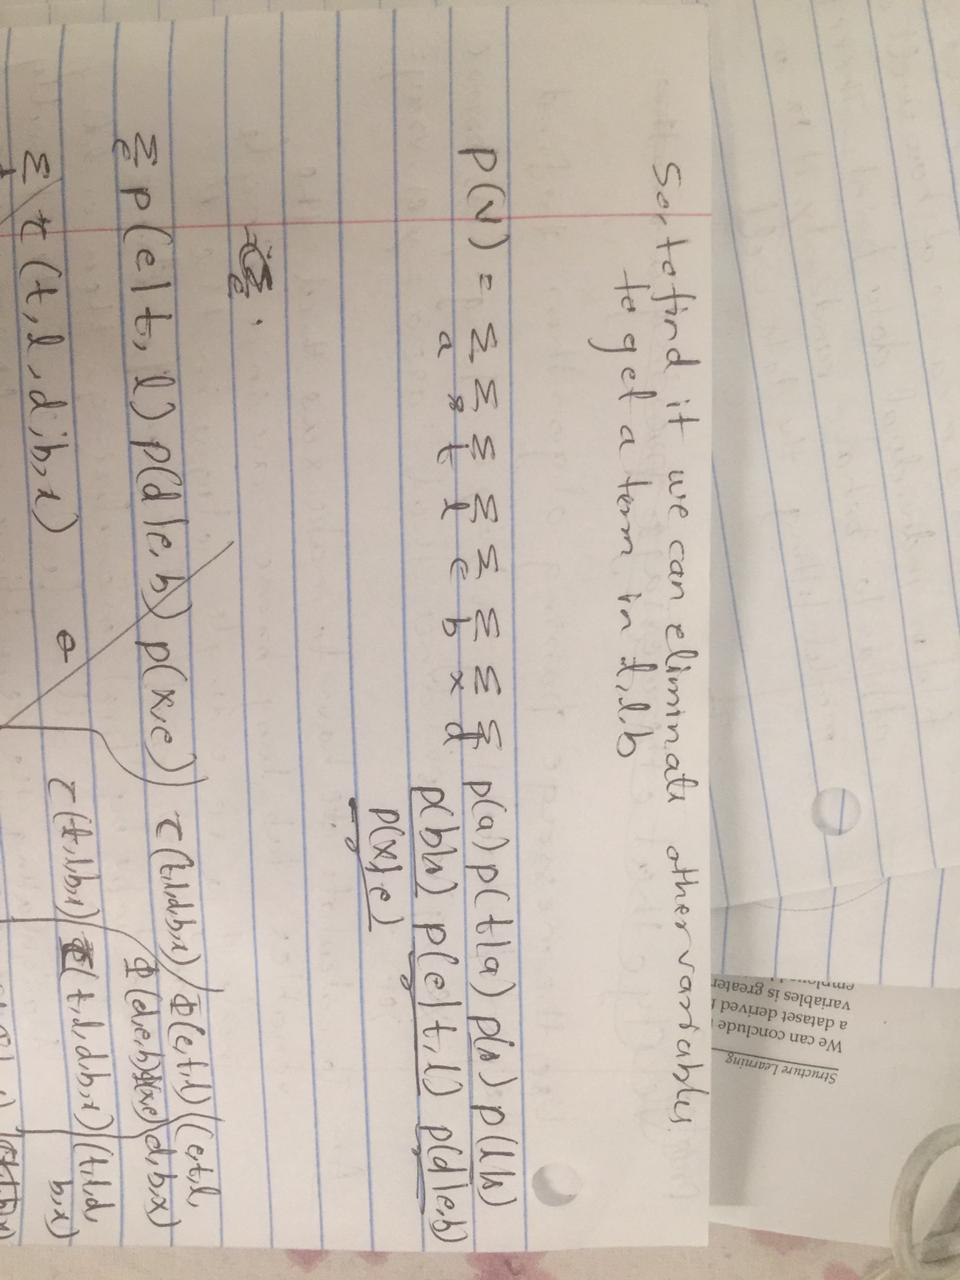 So, to find it we can eliminate other variables
to get a term in t,l,b
P(v) = Σ Σ Σ Σ Σ Σ Σ Σ p(a) p(t|a) p(s) p(l|s)
a s t l e b x d p(b|s) p(e|t,l) p(d|e,b)
p(x,e)
Σ p(e|t,l) p(d|e,b) p(x,e) τ(t,l,d,b,x) Φ(e,t,l) (e,t,l,
e Φ(d,e,b) d,b,x)
Σ τ(t,l,d,b,x) τ(t,l,b,x) (t,l,d,b,x) (t,l,d,
b,x)
Structure Learning
We can conclude
a dataset derived
variables is greater